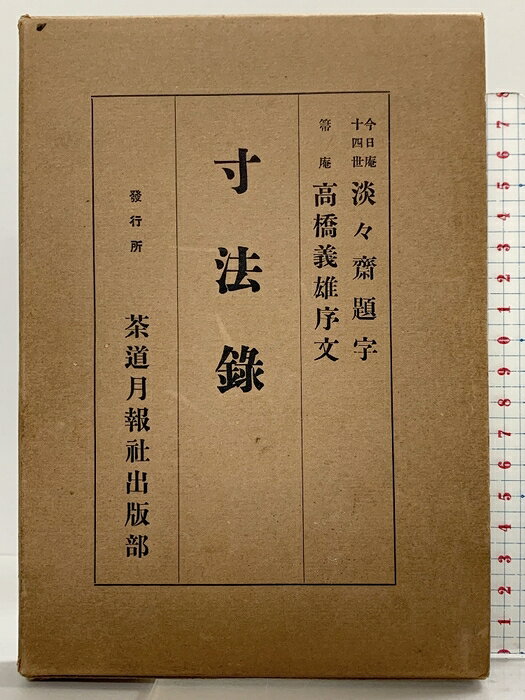 今日庵
十四世
淡々齋題字
箒庵
高橋義雄序文
寸法錄
發行所
茶道月報社出版部
8
7
6
5
4
3
2
1
9
8
7
6
5
4
3
2
1